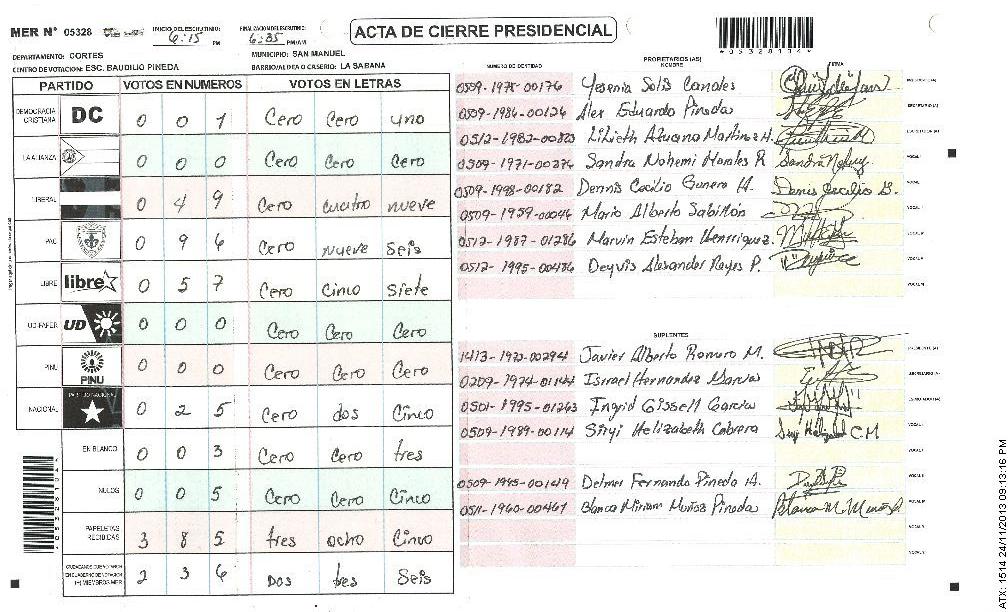 MER N° 05328 INICIO DEL ESCRUTINIO: 6:15 PM FINALIZACION DEL ESCRUTINIO: 6:35 PM/AM ACTA DE CIERRE PRESIDENCIAL
DEPARTAMENTO: CORTES MUNICIPIO: SAN MANUEL
CENTRO DE VOTACION: ESC. BAUDILIO PINEDA BARRIO/ALDEA O CASERIO: LA SABANA
PARTIDO VOTOS EN NUMEROS VOTOS EN LETRAS
DEMOCRACIA CRISTIANA DC 0 0 1 Cero Cero uno
LA ALIANZA 0 0 0 Cero Cero Cero
LIBERAL 0 4 9 Cero cuatro nueve
PAC 0 9 6 Cero nueve Seis
LIBRE libre 0 5 7 Cero Cinco Siete
UD/FAPER UD 0 0 0 Cero Cero Cero
PINU PINU 0 0 0 Cero Cero Cero
NACIONAL PARTIDO NACIONAL 0 2 5 Cero dos Cinco
EN BLANCO 0 0 3 Cero Cero tres
NULOS 0 0 5 Cero Cero Cinco
PAPELETAS RECIBIDAS 3 8 5 tres ocho Cinco
CIUDADANOS QUE VOTARON EN CUADERNO DE VOTACION (+) MIEMBROS MER 2 3 6 Dos tres Seis
05328184
PROPIETARIOS (AS)
NUMERO DE IDENTIDAD NOMBRE FIRMA
0509-1975-00176 Yesenia Solis Canales
0509-1986-00126 Alex Eduardo Pineda
Lilieth Azucena Martinez H.
0509-1971-00274 Sandra Nohemi Morales R
0509-1998-00182 Dennis Cecilio Gunera M.
0509-1959-00046 Mario Alberto Sabillón
0512-1987-01286 Marvin Esteban Henrriquez
0512-1995-00486 Deyvis Alexander Reyes P.
SUPLENTES
1413-1970-00294 Javier Alberto Romero M.
0209-1974-01144 Ismael Hernandez Garcias
0501-1995-01263 Ingrid Gissell Garcia
0509-1989-00114 Siryi Helizabeth Cabrera
0509-1945-00149 Delmer Fernando Pineda A.
0511-1960-00467 Blanca Miriam Muñoz Pineda
ATX: 1514 24/11/2013 09:13:16 PM